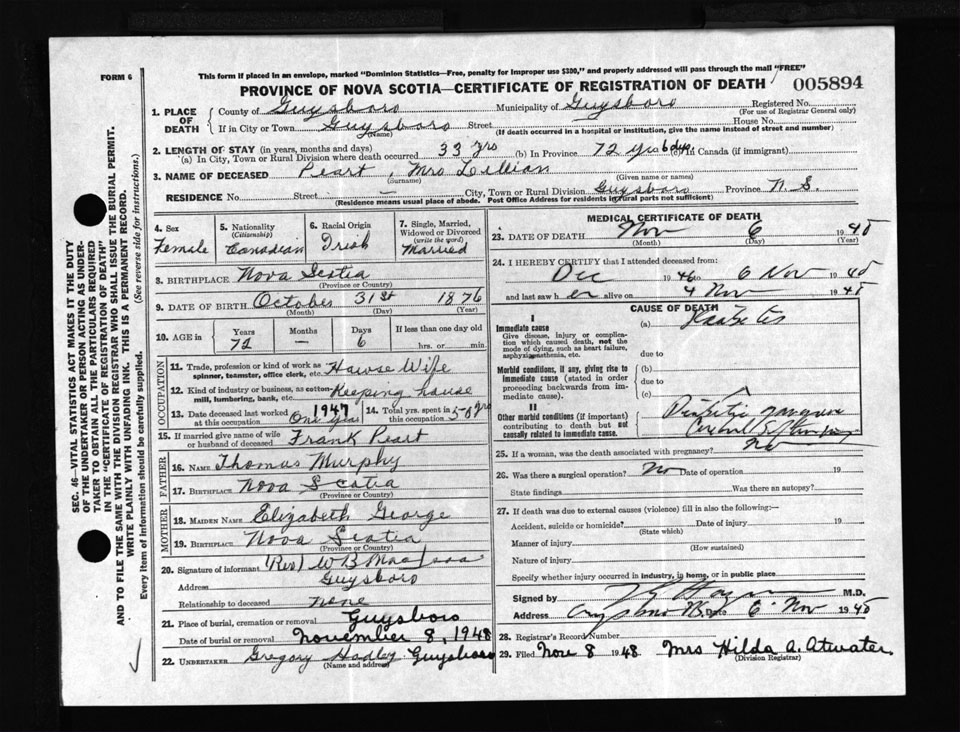 FORM 6
This form if placed in an envelope, marked "Dominion Statistics—Free, penalty for improper use $300," and properly addressed will pass through the mail "FREE"
PROVINCE OF NOVA SCOTIA—CERTIFICATE OF REGISTRATION OF DEATH 005894
SEC. 46—VITAL STATISTICS ACT MAKES IT THE DUTY
OF THE UNDERTAKER OR PERSON ACTING AS UNDER-
TAKER TO OBTAIN ALL THE PARTICULARS REQUIRED
IN THE "CERTIFICATE OF REGISTRATION OF DEATH"
AND TO FILE THE SAME WITH THE DIVISION REGISTRAR WHO SHALL ISSUE THE BURIAL PERMIT.
WRITE PLAINLY WITH UNFADING INK. THIS IS A PERMANENT RECORD.
Every item of information should be carefully supplied. (See reverse side for instructions.)
1. PLACE OF DEATH
County of Guysboro Municipality of Guysboro Registered No.
(For use of Registrar General only)
If in City or Town Guysboro Street House No.
(Name) (If death occurred in a hospital or institution, give the name instead of street and number)
2. LENGTH OF STAY (in years, months and days)
(a) In City, Town or Rural Division where death occurred 33 yrs (b) In Province 72 yrs 6 dys (c) In Canada (if immigrant)
3. NAME OF DECEASED Peart, Mrs Lillian
(Surname) (Given name or names)
RESIDENCE No. — Street City, Town or Rural Division Guysboro Province N. S.
(Residence means usual place of abode. Post Office Address for residents in rural parts not sufficient)
4. Sex
Female
5. Nationality
(Citizenship)
Canadian
6. Racial Origin
Irish
7. Single, Married,
Widowed or Divorced
(write the word)
Married
8. BIRTHPLACE Nova Scotia
(Province or Country)
9. DATE OF BIRTH October 31st 1876
(Month) (Day) (Year)
10. AGE in Years Months Days If less than one day old
72 — 6 hrs. or min.
OCCUPATION
11. Trade, profession or kind of work as
spinner, teamster, office clerk, etc. Hawse Wife
12. Kind of industry or business, as cotton-
mill, lumbering, bank, etc. Keeping hause
13. Date deceased last worked
at this occupation 1947
14. Total yrs. spent in
this occupation 50 yrs
15. If married give name of wife
or husband of deceased Frank Peart
FATHER
16. NAME Thomas Murphy
17. BIRTHPLACE Nova Scotia
(Province or Country)
MOTHER
18. MAIDEN NAME Elizabeth George
19. BIRTHPLACE Nova Scotia
(Province or Country)
20. Signature of informant (Rev) W B
Address Guysboro
Relationship to deceased none
21. Place of burial, cremation or removal Guysboro
Date of burial or removal November 8, 1948
22. UNDERTAKER Gregory Hadley Guysboro
(Name and address)
MEDICAL CERTIFICATE OF DEATH
23. DATE OF DEATH Nov 6 1948
(Month) (Day) (Year)
24. I HEREBY CERTIFY that I attended deceased from:
Dec 1946 to 6 Nov 1948
and last saw her alive on 4 Nov 1948
CAUSE OF DEATH
I
Immediate cause
Give disease, injury or complica-
tion which caused death, not the
mode of dying, such as heart failure,
asphyxia, asthenia, etc.
(a) Diabetes
due to
Morbid conditions, if any, giving rise to
immediate cause (stated in order
proceeding backwards from im-
mediate cause).
(b)
due to
(c)
II
Other morbid conditions (if important)
contributing to death but not
causally related to immediate cause.
Diabetic gangrene
25. If a woman, was the death associated with pregnancy? no
26. Was there a surgical operation? No Date of operation 19
State findings Was there an autopsy?
27. If death was due to external causes (violence) fill in also the following:
Accident, suicide or homicide? Date of injury 19
(State which)
Manner of injury
(How sustained)
Nature of injury
Specify whether injury occurred in industry, in home, or in public place
Signed by M.D.
Address Guysboro NS Date 6 Nov 1948
28. Registrar's Record Number
29. Filed Nov 8 1948 Mrs Hilda A. Atwater
(Division Registrar)